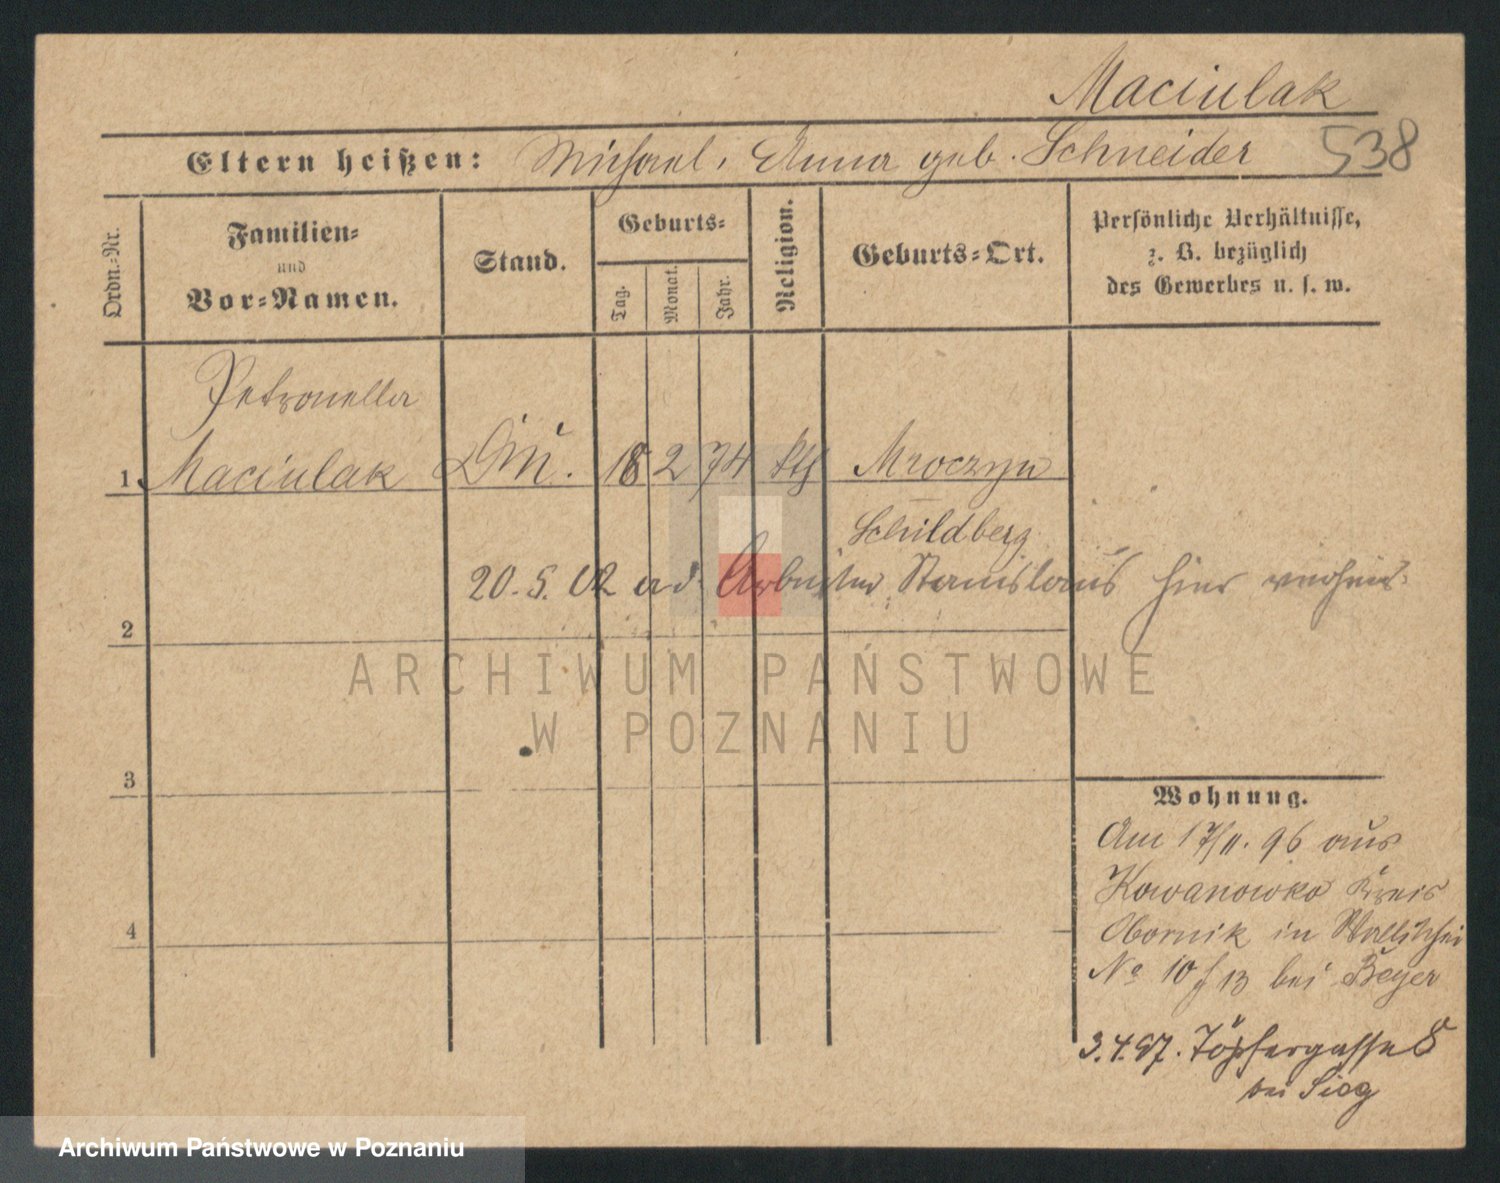 Maciulak
Eltern heißen: Michael, Anna geb. Schneider 538
Ordn.-Nr.
Familien-
und
Vor-Namen.
Stand.
Geburts-
Tag.
Monat.
Jahr.
Religion.
Geburts-Ort.
Persönliche Verhältnisse,
z. B. bezüglich
des Gewerbes u. s. w.
Petronella
1 Maciulak 18 2 74 kth Mroczyn
Schildberg
20.5.02 ad. Arbeiter Stanislaus hier
2
ARCHIWUM PAŃSTWOWE
W POZNANIU
3
Wohnung.
Am 17/11. 96 aus
Kowanowko Kreis
Obornik in Wallischei
No 10 f 13 bei Beyer
4
3.4.97. Töpfergasse 8
bei Sieg
Archiwum Państwowe w Poznaniu